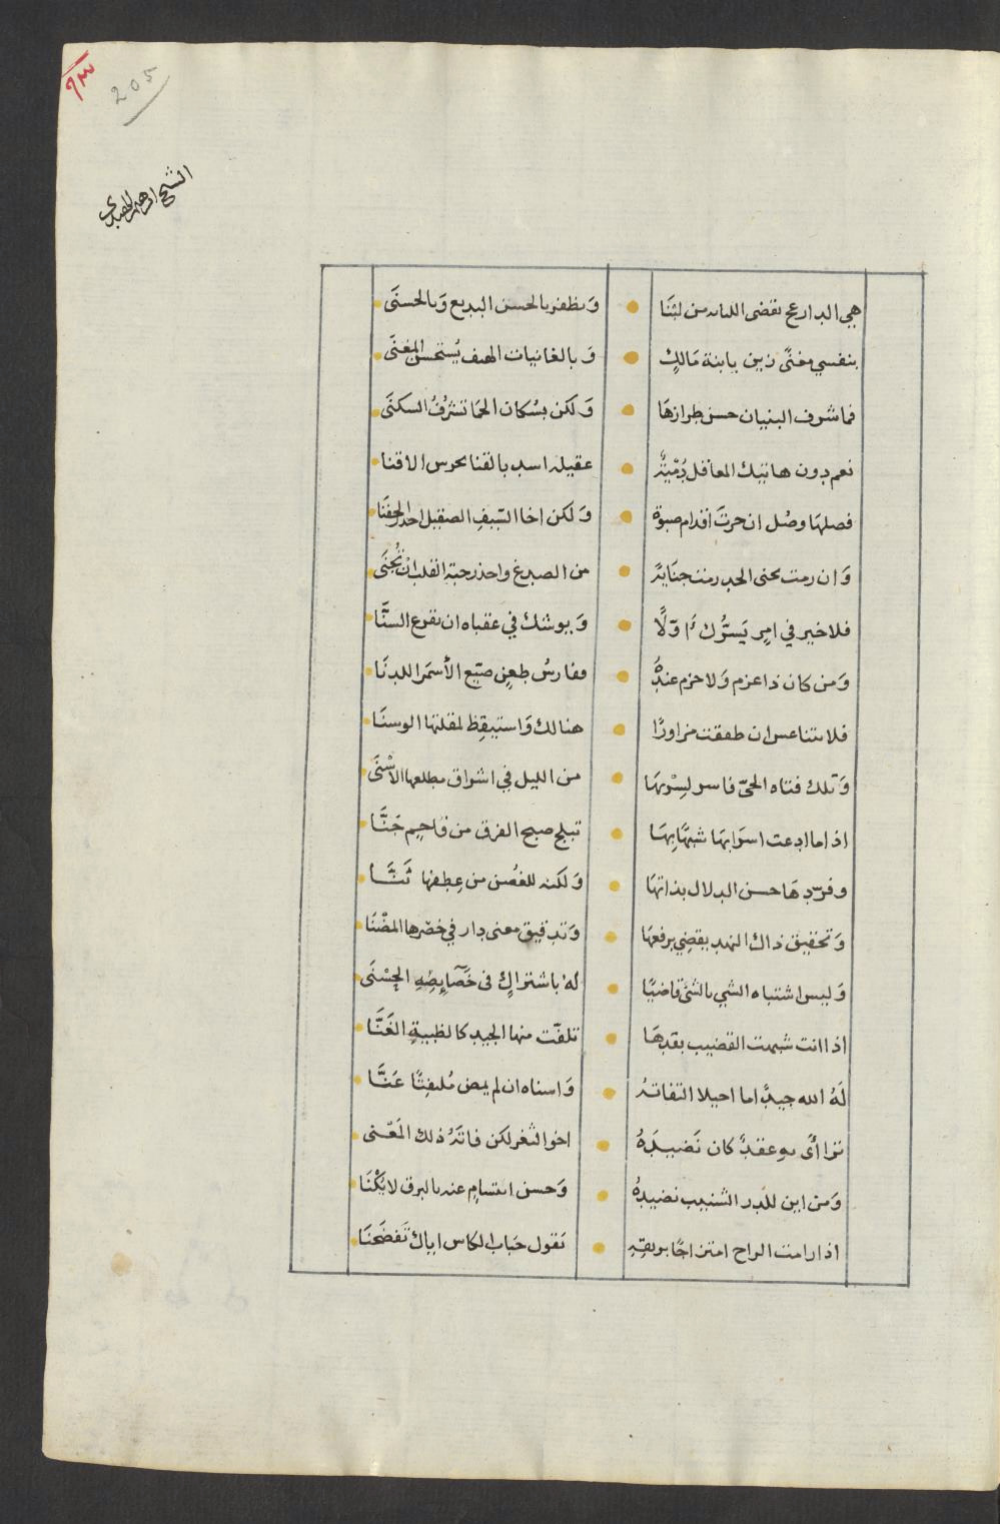 205
الشيخ
هي الدار عج نقضي اللبانه من لبنَا وَنظفر بالحسن البديع وَبالحسنَى
بنفسي مغنًى زين يا ابنة مَالكٍ وَ بالغانيات الهيف يُستحسن المغنَى
فما شرف البنيان حسن طرازهَا وَ لكن بسُكان الحمَا تشرُفُ السكنَى
نعم دون هاتيك المعاقل دُمْيَةٌ عقيلة اسد بالقنا تحرس الاقنا
فصلهَا وصُل ان حرتَ اقدام صبوة وَ لكن اخا السَّيفِ الصقيل احذر الجفنَا
وَ ان رمت تجنى الخد رمت جنَايةً من الصدغ واحذر حبة القلب انْ تُجنَى
فلا خير في امرٍ يَسرُّك أوّلًا وَ يوشك في عقباه ان تقرع السنَّا
وَمن كان ذا عزم وَ لا حزم عندهُ وفارسُ طعنٍ ضيّع الأسمَر اللدنَا
فلا تتناعس ان طفقت مزاورًا هنالك وَ استيقِظ لمقلتها الوسنَا
وَ تلك فتاه الحيّ فاسر لسِرْبهَا من الليل في اشواق مطلعها الاسْنَى
اذا ما ادعت اسوَابهَا شبهًا بهَا تبلج صبح الفرق من فاحِم جَنَّا
و فرّدهَا حسن الدلال بذاتهَا وَ لكنه للغصن من عِطفها ثَنَّا
وَ تحقيق ذاك النهد يقضِي برفعهَا وَ تدقيق معنى دار في خصرها المضْنَا
وَ ليس اشتباه الشي بالشئ قاضيًا لهُ باشتراكٍ فى خَصَآيِصِهِ الحِسْنَى
اذا انت شبهت القضيب بقدهَا تلفّت منها الجيد كالظبيةِ الغَنَّا
لَهُ الله جيدًا ما احيلا التفاتهُ وَ اسناه ان لم يمض مُلتفِتًا عَنَّا
ترا أى به عقدٌ كان نَضيدَهُ اخو الثغر لكن فاتَهُ ذلك المَعْنى
وَمن اين للدر الشنيب نضيدهُ وَحسن ابتسامٍ عنه بالبرق لا يُكْنَا
اذا رامت الراح امتزاجًا بريقهِ تقول حبَاب الكاس اياك تَفضَحَنَا